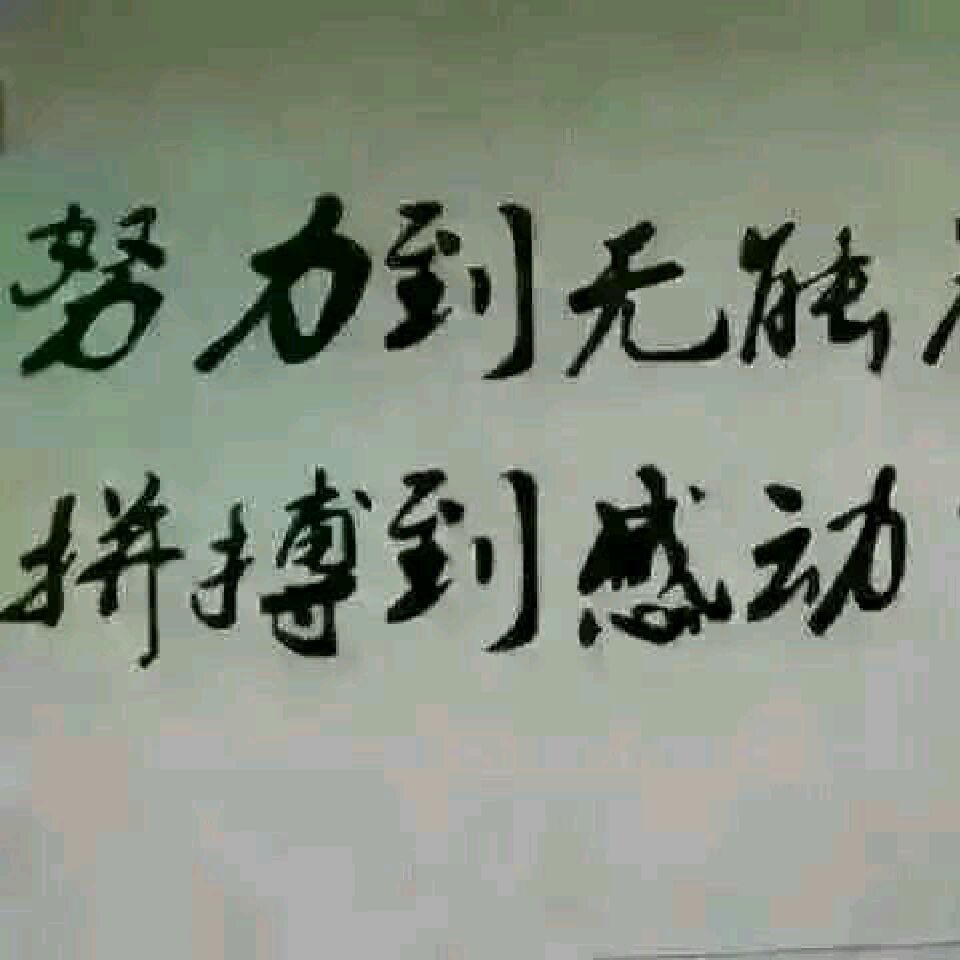 努力到无能
拼搏到感动